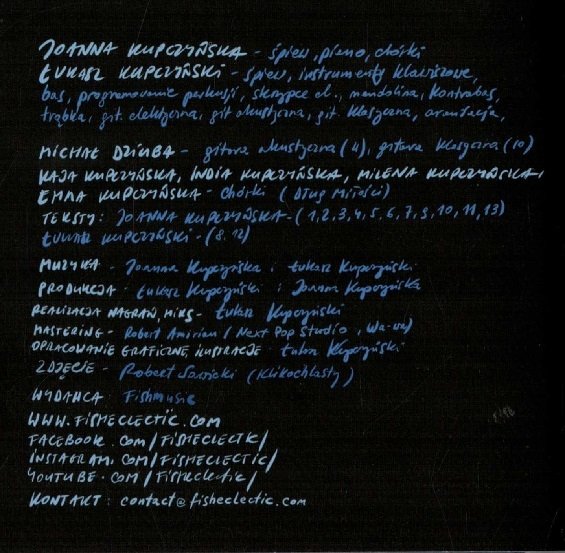 JOANNA KUPCZYŃSKA - śpiew, piano, chórki
ŁUKASZ KUPCZYŃSKI - śpiew, instrumenty klawiszowe,
bas, programowanie perkusji, skrzypce el., mandolina, kontrabas,
trąbka, git. elektryczna, git. akustyczna, git. klasyczna, aranżacja,
MICHAŁ DZIUBA - gitara akustyczna (4), gitara klasyczna (10)
KAJA KUPCZYŃSKA, INDIA KUPCZYŃSKA, MILENA KUPCZYŃSKA,
EMMA KUPCZYŃSKA - chórki (Dług Miłości)
TEKSTY: JOANNA KUPCZYŃSKA - (1,2,3,4,5,6,7,9,10,11,13)
ŁUKASZ KUPCZYŃSKI - (8.12)
MUZYKA - Joanna Kupczyńska i Łukasz Kupczyński
PRODUKCJA - Łukasz Kupczyński i Joanna Kupczyńska
REALIZACJA NAGRAŃ, MIKS - Łukasz Kupczyński
MASTERING - Robert Amirian (Next Pop Studio, Wa-wa)
OPRACOWANIE GRAFICZNE, ILUSTRACJE - Łukasz Kupczyński
ZDJĘCIE - Robert (Klikochlasty)
WYDAWCA - Fishmusic
WWW.FISHECLECTIC.COM
FACEBOOK.COM/FISHECLECTIC/
INSTAGRAM.COM/FISHECLECTIC/
YOUTUBE.COM/Fisheclectic/
KONTAKT: contact@fisheclectic.com